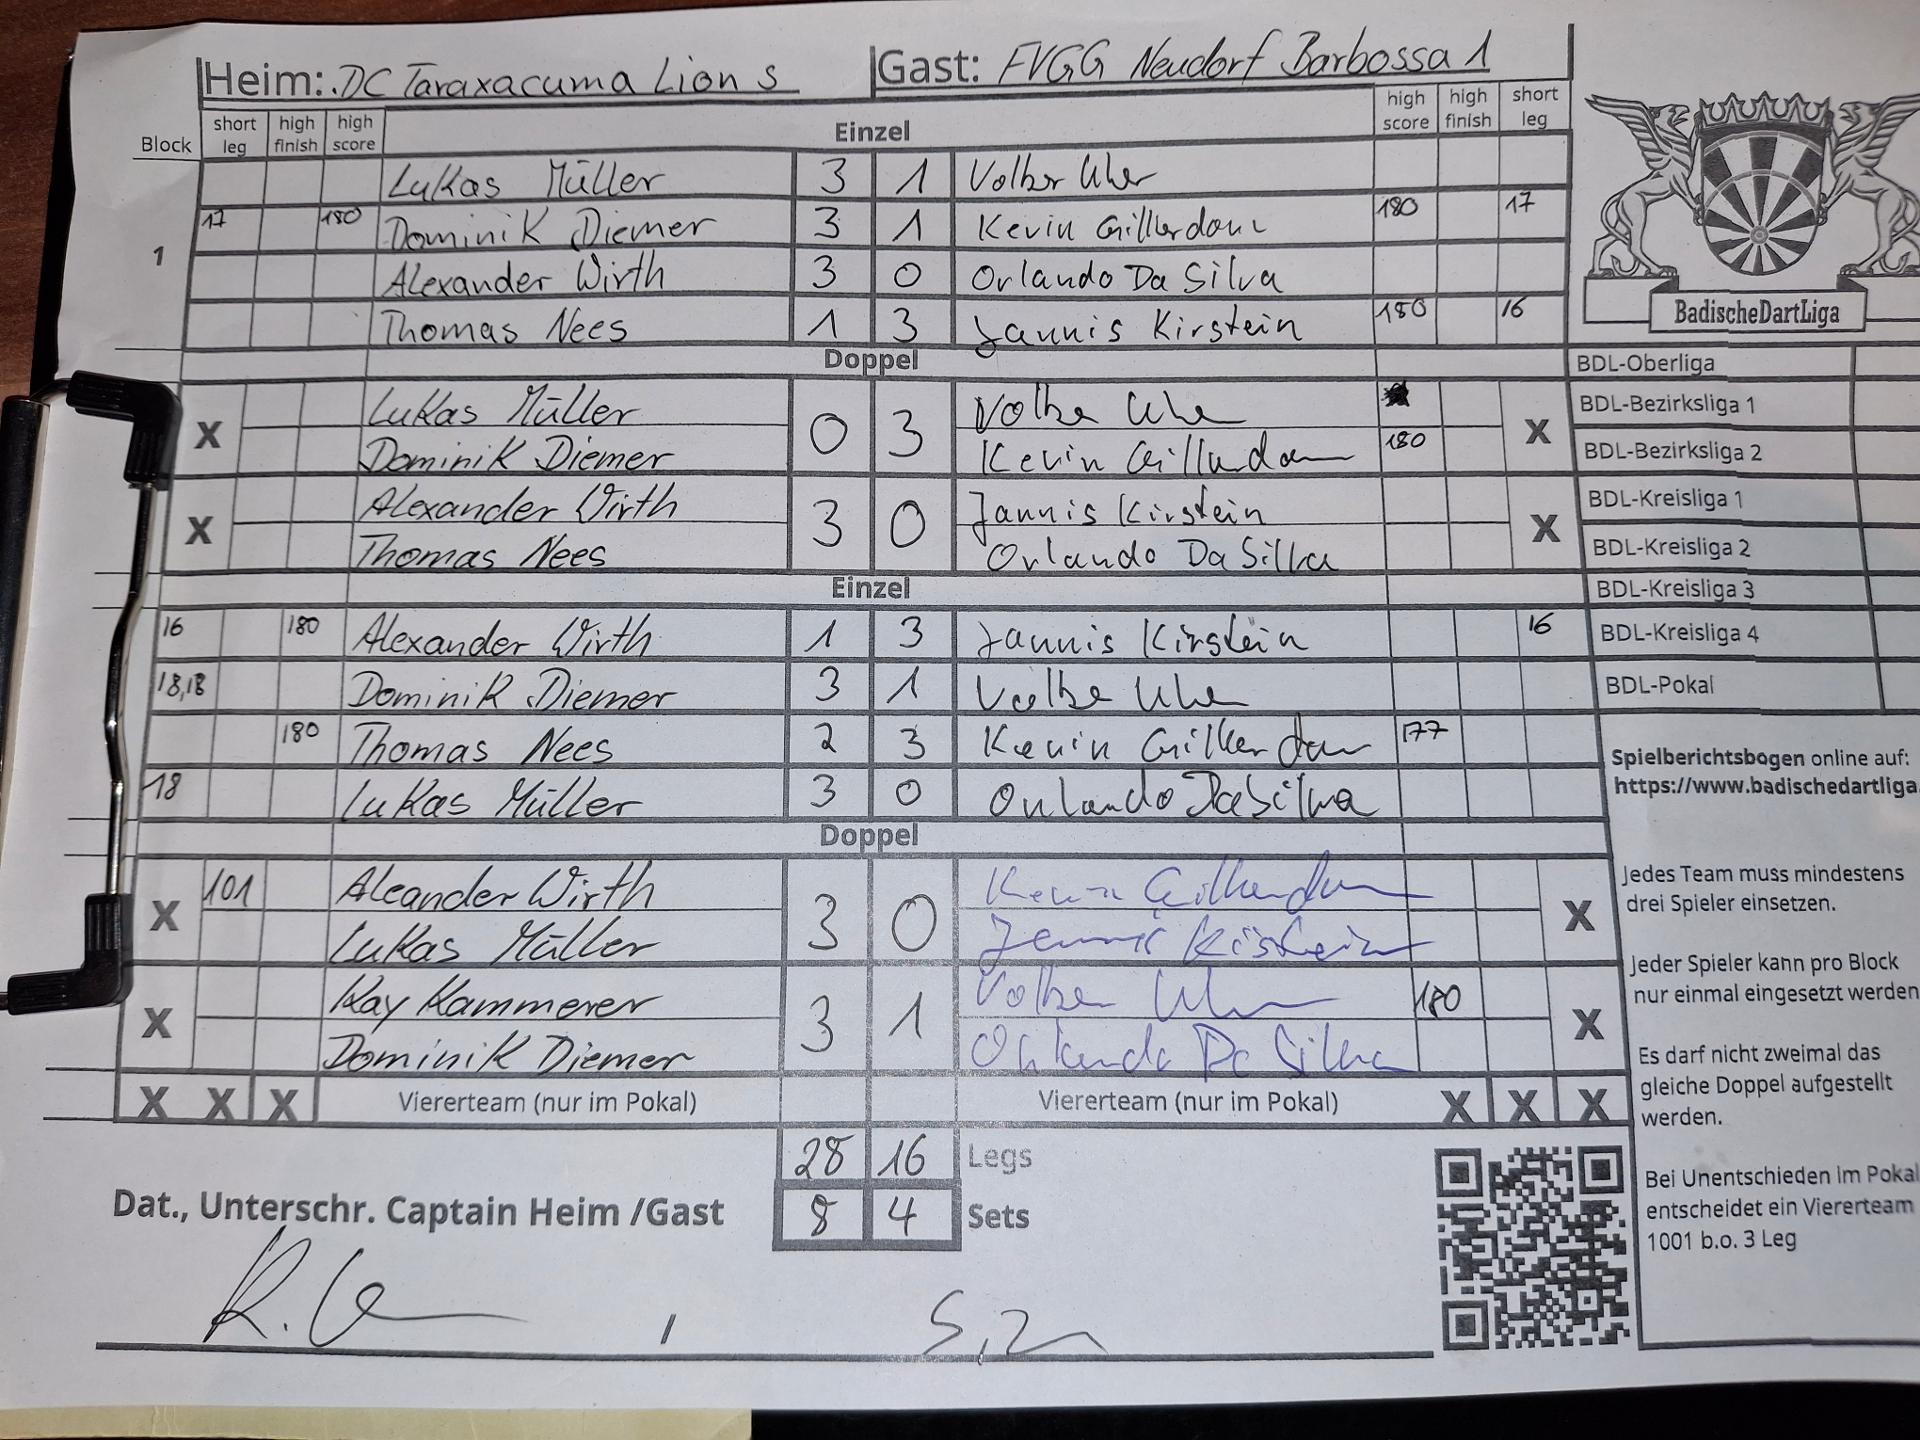 Heim: DC Taraxacuma Lions Gast: FVGG Neudorf Barbossa 1
Block short leg high finish high score Einzel high score high finish short leg
Lukas Müller 3 1 Volker Uher
17 180 Dominik Diemer 3 1 Kevin Gillardon 180 17
1
Alexander Wirth 3 0 Orlando Da Silva
Thomas Nees 1 3 Jannis Kirstein 180 16
Doppel
Lukas Müller
X 0 3 X
Dominik Diemer Kevin 180
Alexander Wirth Jannis Kirstein
X 3 0 X
Thomas Nees Orlando Da Silva
Einzel
16 180 Alexander Wirth 1 3 Jannis Kirstein 16
18,18 Dominik Diemer 3 1
180 Thomas Nees 2 3 Kevin 177
18 Lukas Müller 3 0 Orlando Da Silva
Doppel
101 Aleander Wirth Kevin
X 3 0 X
Lukas Müller
Kay Kammerer 180
X 3 1 X
Dominik Diemer Orlando Da Silva
X X X Viererteam (nur im Pokal) Viererteam (nur im Pokal) X X X
28 16 Legs
Dat., Unterschr. Captain Heim /Gast 8 4 Sets
BadischeDartLiga
BDL-Oberliga
BDL-Bezirksliga 1
BDL-Bezirksliga 2
BDL-Kreisliga 1
BDL-Kreisliga 2
BDL-Kreisliga 3
BDL-Kreisliga 4
BDL-Pokal
Spielberichtsbogen online auf:
https://www.badischedartliga.
Jedes Team muss mindestens
drei Spieler einsetzen.
Jeder Spieler kann pro Block
nur einmal eingesetzt werden
Es darf nicht zweimal das
gleiche Doppel aufgestellt
werden.
Bei Unentschieden im Pokal
entscheidet ein Viererteam
1001 b.o. 3 Leg